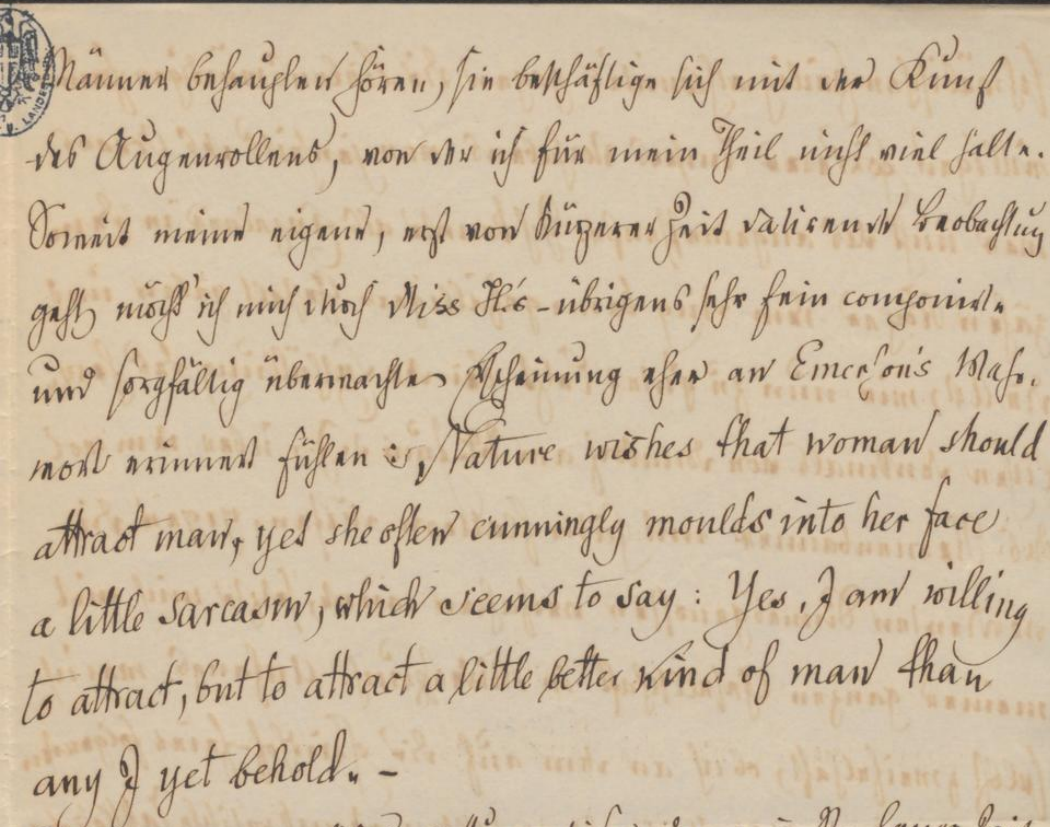 Männer behaupten hören, sie beschäftige sich mit der Kunst
des Augenrollens, von der ich für mein Theil nicht viel halte.
Soweit meine eigene, erst von kürzerer Zeit datirende Beobachtung
geht, möcht' ich mich durch Miss H.'s – übrigens sehr fein componirte
und sorgfältig überwachte Erscheinung eher an Emerson's Mahn-
wort erinnert fühlen: „Nature wishes that woman should
attract man, yet she often cunningly moulds into her face
a little sarcasm, which seems to say: Yes, I am willing
to attract, but to attract a little better kind of man than
any I yet behold." –